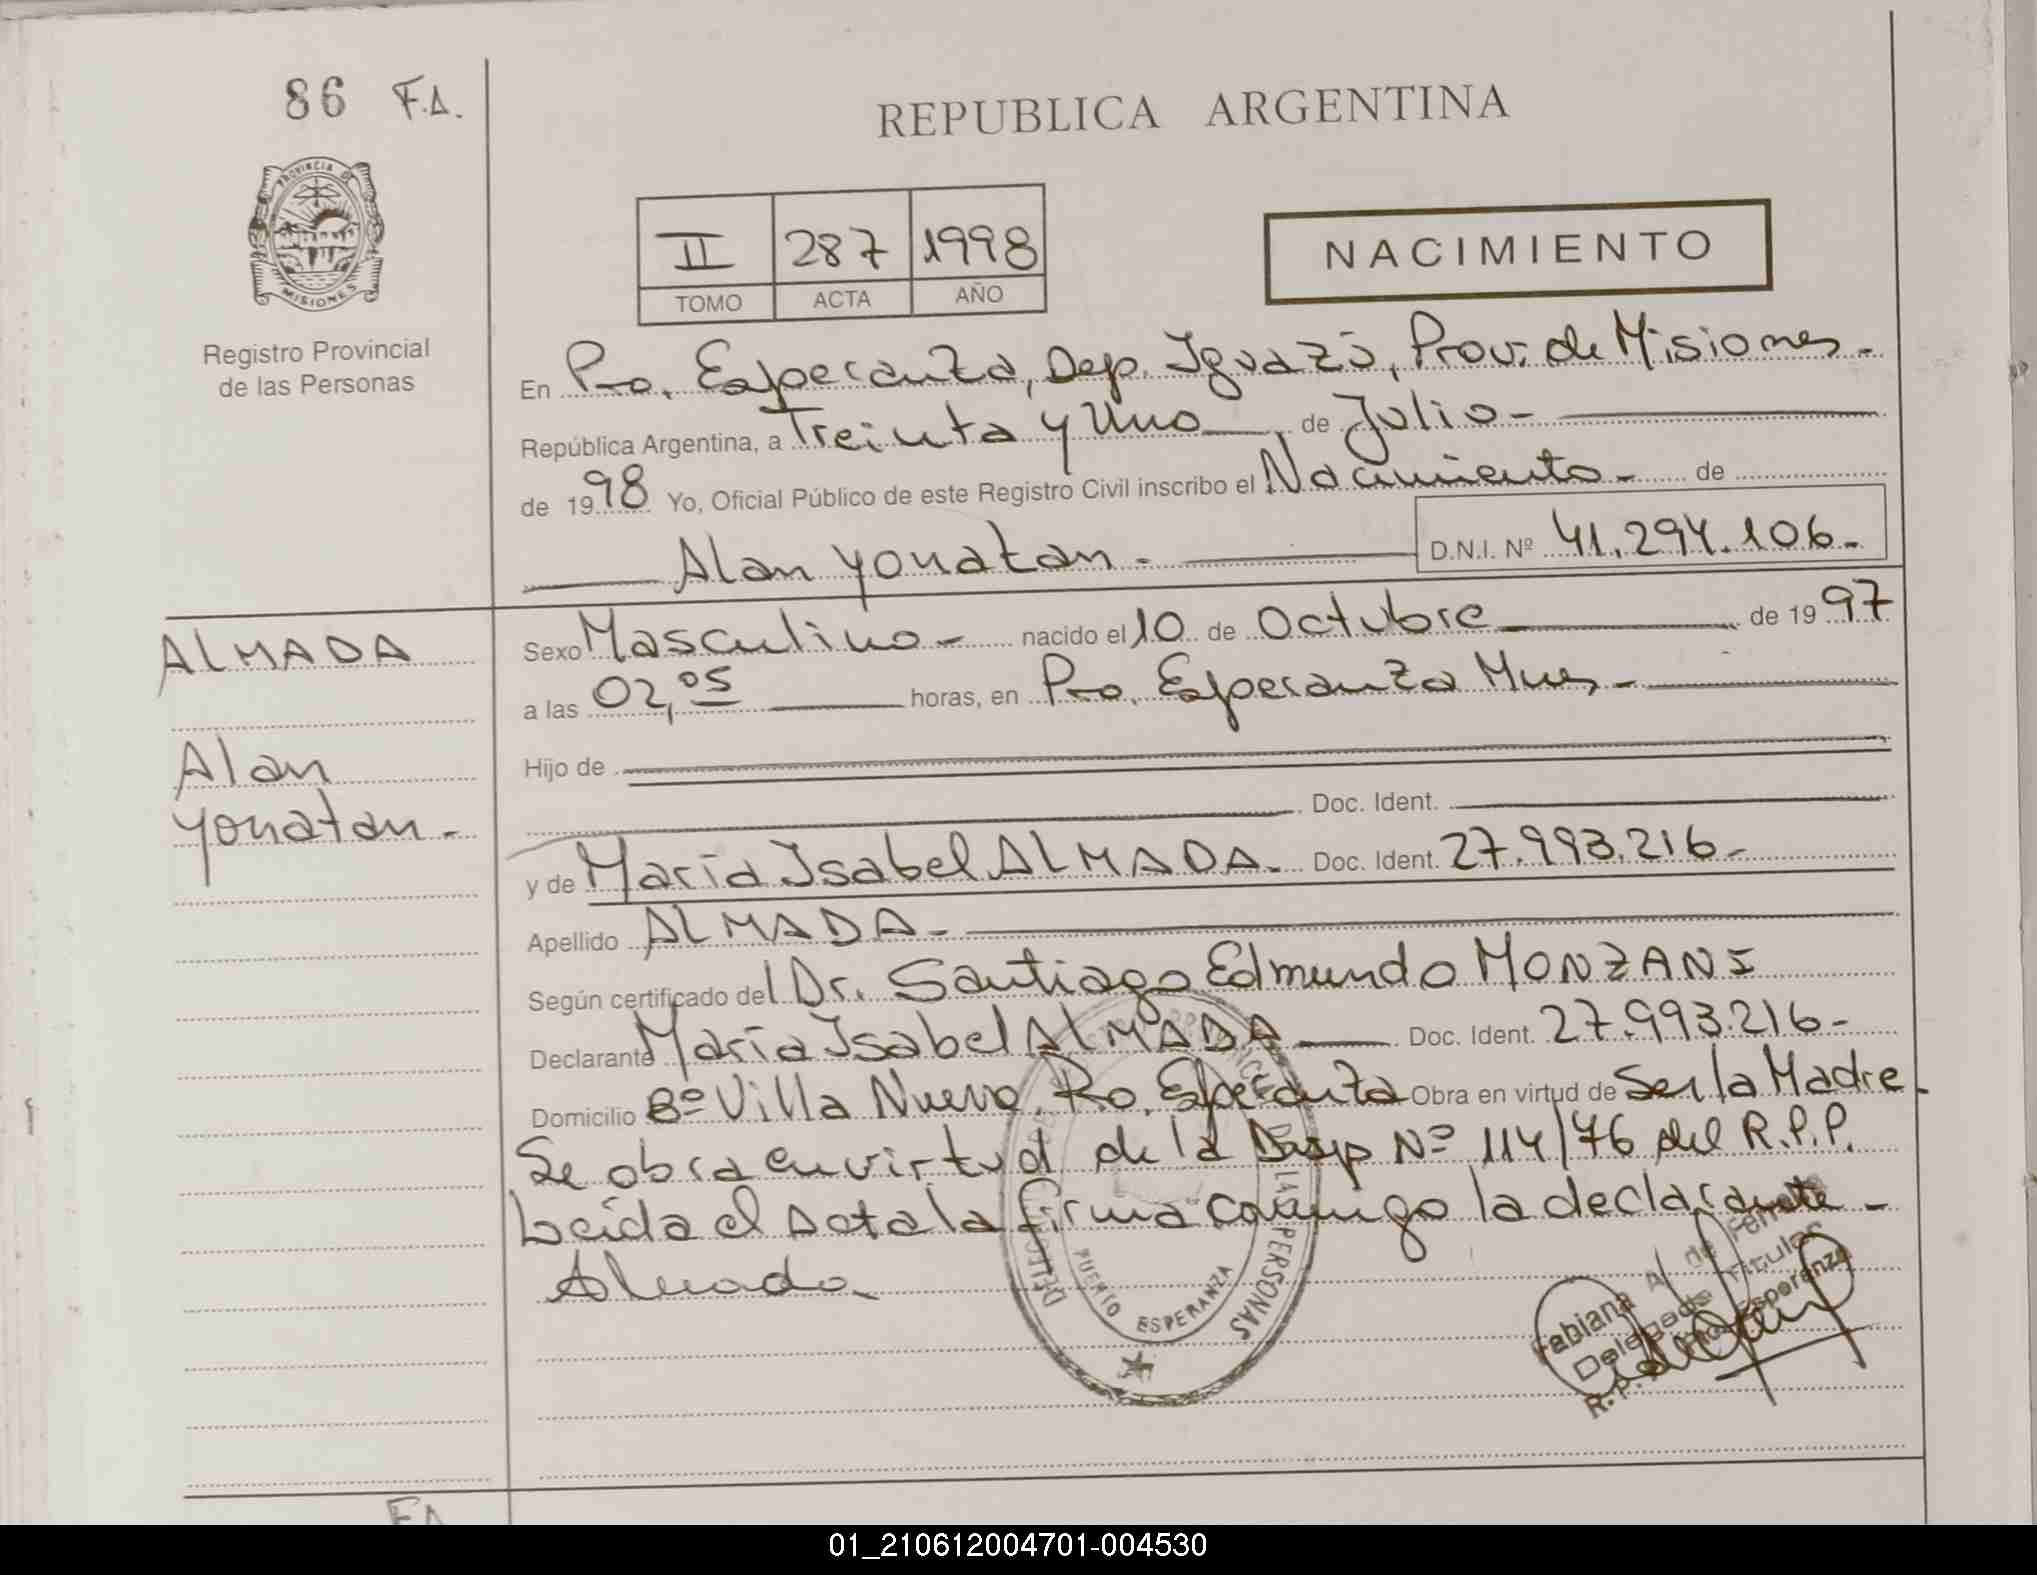 86 F.A.
REPUBLICA ARGENTINA
PROVINCIA DE
MISIONES
Registro Provincial
de las Personas
II 287 1998
TOMO ACTA AÑO
NACIMIENTO
En Pto. Esperanza, Dep. Iguazú, Prov. de Misiones-
República Argentina, a Treinta y Uno de Julio-
de 1998 Yo, Oficial Público de este Registro Civil inscribo el Nacimiento- de
Alan Yonatan.- D.N.I. Nº 41.294.106-
ALMADA
Alan
Yonatan-
Sexo Masculino- nacido el 10 de Octubre de 1997
a las 02,05 horas, en Pto. Esperanza Mnes-
Hijo de
Doc. Ident.
y de María Isabel ALMADA. Doc. Ident. 27.993.216-
Apellido ALMADA-
Según certificado del Dr. Santiago Edmundo MONZANI
Declarante María Isabel ALMADA Doc. Ident. 27.993.216-
Domicilio Bº Villa Nueva, Pto. Esperanza Obra en virtud de Ser la Madre.
Se obra en virtud de la Disp Nº 114/76 del R.P.P.
Leída el Acta la firma conmigo la declarante-
Almada
LAS PERSONAS
PUERTO ESPERANZA
Fabiana A. de Ferreira
Delegada Titular
R.P.P. Pto. Esperanza
FA
01_210612004701-004530